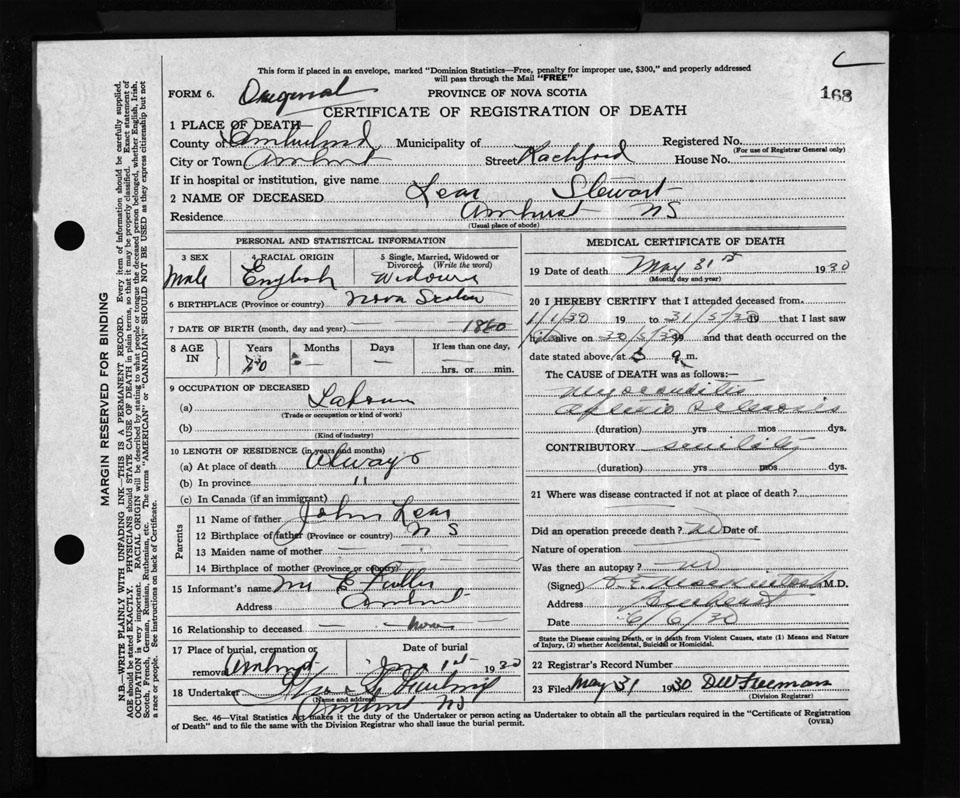 This form if placed in an envelope, marked "Dominion Statistics—Free, penalty for improper use, $300," and properly addressed
will pass through the Mail "FREE"
C
168
FORM 6. Original PROVINCE OF NOVA SCOTIA
CERTIFICATE OF REGISTRATION OF DEATH
1 PLACE OF DEATH
County of Cumberland Municipality of Registered No.
(For use of Registrar General only)
City or Town Amherst Street Rachford House No.
If in hospital or institution, give name
2 NAME OF DECEASED Lear Stewart
Residence Amherst NS
(Usual place of abode)
PERSONAL AND STATISTICAL INFORMATION
3 SEX 4 RACIAL ORIGIN 5 Single, Married, Widowed or Divorced (Write the word)
Male English
6 BIRTHPLACE (Province or country) Nova Scotia
7 DATE OF BIRTH (month, day and year) 1860
8 AGE IN Years Months Days If less than one day,
70 — — hrs. or min.
9 OCCUPATION OF DECEASED
(a) Labour
(Trade or occupation or kind of work)
(b)
(Kind of industry)
10 LENGTH OF RESIDENCE (in years and months)
(a) At place of death Always
(b) In province "
(c) In Canada (if an immigrant)
Parents
11 Name of father John Lear
12 Birthplace of father (Province or country) N S
13 Maiden name of mother —
14 Birthplace of mother (Province or country) —
15 Informant's name Mr E Fuller
Address Amherst
16 Relationship to deceased none
17 Place of burial, cremation or removal Amherst Date of burial June 1st 1930
18 Undertaker
(Name and address)
Amherst NS
MEDICAL CERTIFICATE OF DEATH
19 Date of death May 31st 1930
(Month, day and year)
20 I HEREBY CERTIFY that I attended deceased from
1/1/30 19 to 31/5/30 19 that I last saw
him alive on 30/5/30 19 and that death occurred on the
date stated above, at 5 a m.
The CAUSE of DEATH was as follows:—
Myocarditis
Arterio sclerosis
(duration) yrs mos dys.
CONTRIBUTORY senility
(duration) yrs mos dys.
21 Where was disease contracted if not at place of death?
Did an operation precede death? no Date of
Nature of operation
Was there an autopsy? no
(Signed) M.D.
Address Amherst
Date 6/6/30
State the Disease causing Death, or in death from Violent Causes, state (1) Means and Nature
of Injury, (2) whether Accidental, Suicidal or Homicidal.
22 Registrar's Record Number
23 Filed May 31 1930 DW Freeman
(Division Registrar)
Sec. 46—Vital Statistics Act makes it the duty of the Undertaker or person acting as Undertaker to obtain all the particulars required in the "Certificate of Registration
of Death" and to file the same with the Division Registrar who shall issue the burial permit. (OVER)
MARGIN RESERVED FOR BINDING
N.B.—WRITE PLAINLY WITH UNFADING INK—THIS IS A PERMANENT RECORD. Every item of information should be carefully supplied.
AGE should be stated EXACTLY. PHYSICIANS should STATE CAUSE OF DEATH in plain terms, so that it may be properly classified. Exact statement of
OCCUPATION is very important. RACIAL ORIGIN will be described by stating to what people or tongue the deceased person belonged, whether English, Irish,
Scotch, French, German, Russian, Ruthenian, etc. The terms "AMERICAN" or "CANADIAN" SHOULD NOT BE USED as they express citizenship but not
a race or people. See instructions on back of Certificate.